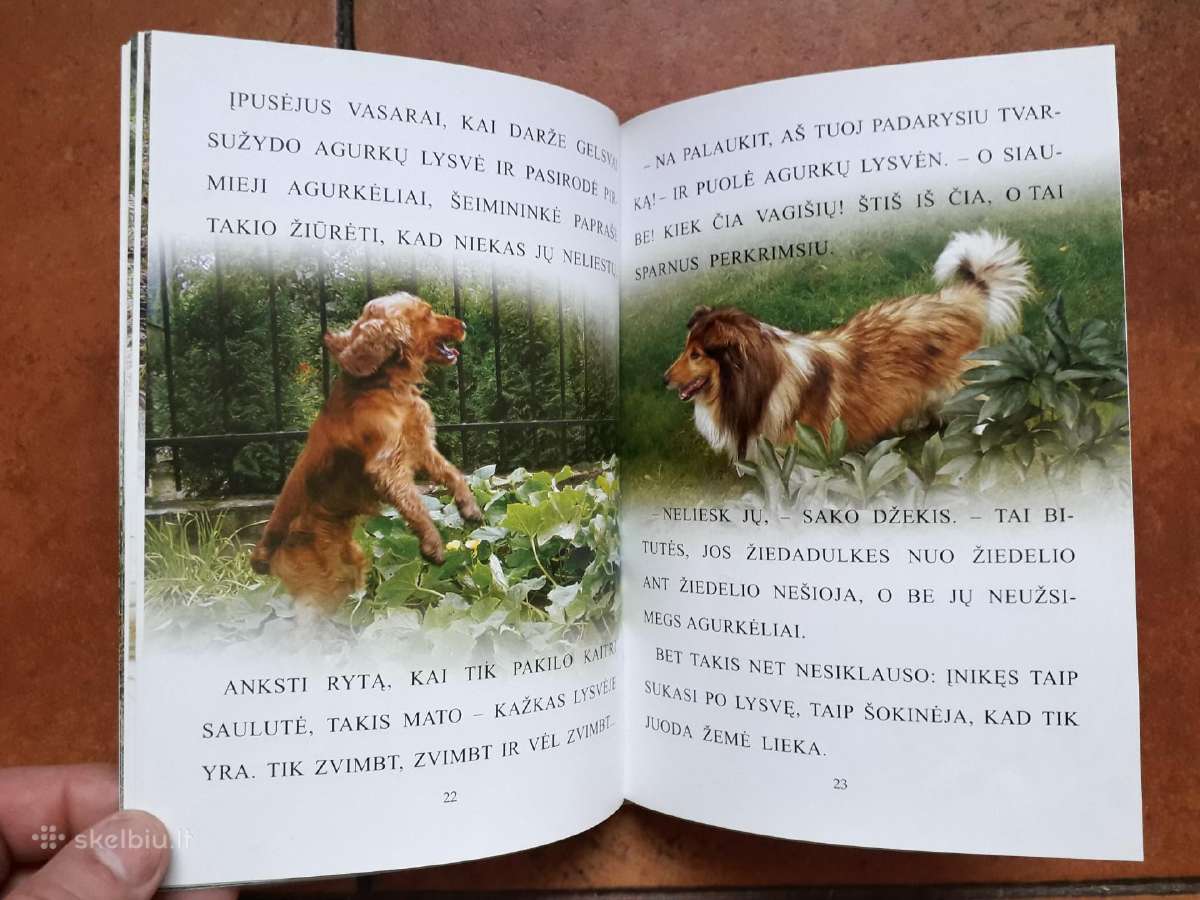 ĮPUSĖJUS VASARAI, KAI DARŽE GELSVAI
SUŽYDO AGURKŲ LYSVĖ IR PASIRODĖ PIR-
MIEJI AGURKĖLIAI, ŠEIMININKĖ PAPRAŠĖ
TAKIO ŽIŪRĖTI, KAD NIEKAS JŲ NELIESTŲ.
ANKSTI RYTĄ, KAI TIK PAKILO KAITRI
SAULUTĖ, TAKIS MATO – KAŽKAS LYSVĖJE
YRA. TIK ZVIMBT, ZVIMBT IR VĖL ZVIMBT...
22
– NA PALAUKIT, AŠ TUOJ PADARYSIU TVAR-
KĄ! – IR PUOLĖ AGURKŲ LYSVĖN. – O SIAU-
BE! KIEK ČIA VAGIŠIŲ! ŠTIŠ IŠ ČIA, O TAI
SPARNUS PERKRIMSIU.
– NELIESK JŲ, – SAKO DŽEKIS. – TAI BI-
TUTĖS, JOS ŽIEDADULKES NUO ŽIEDELIO
ANT ŽIEDELIO NEŠIOJA, O BE JŲ NEUŽSI-
MEGS AGURKĖLIAI.
BET TAKIS NET NESIKLAUSO: ĮNIKĘS TAIP
SUKASI PO LYSVĘ, TAIP ŠOKINĖJA, KAD TIK
JUODA ŽEMĖ LIEKA.
23
skelbiu.lt